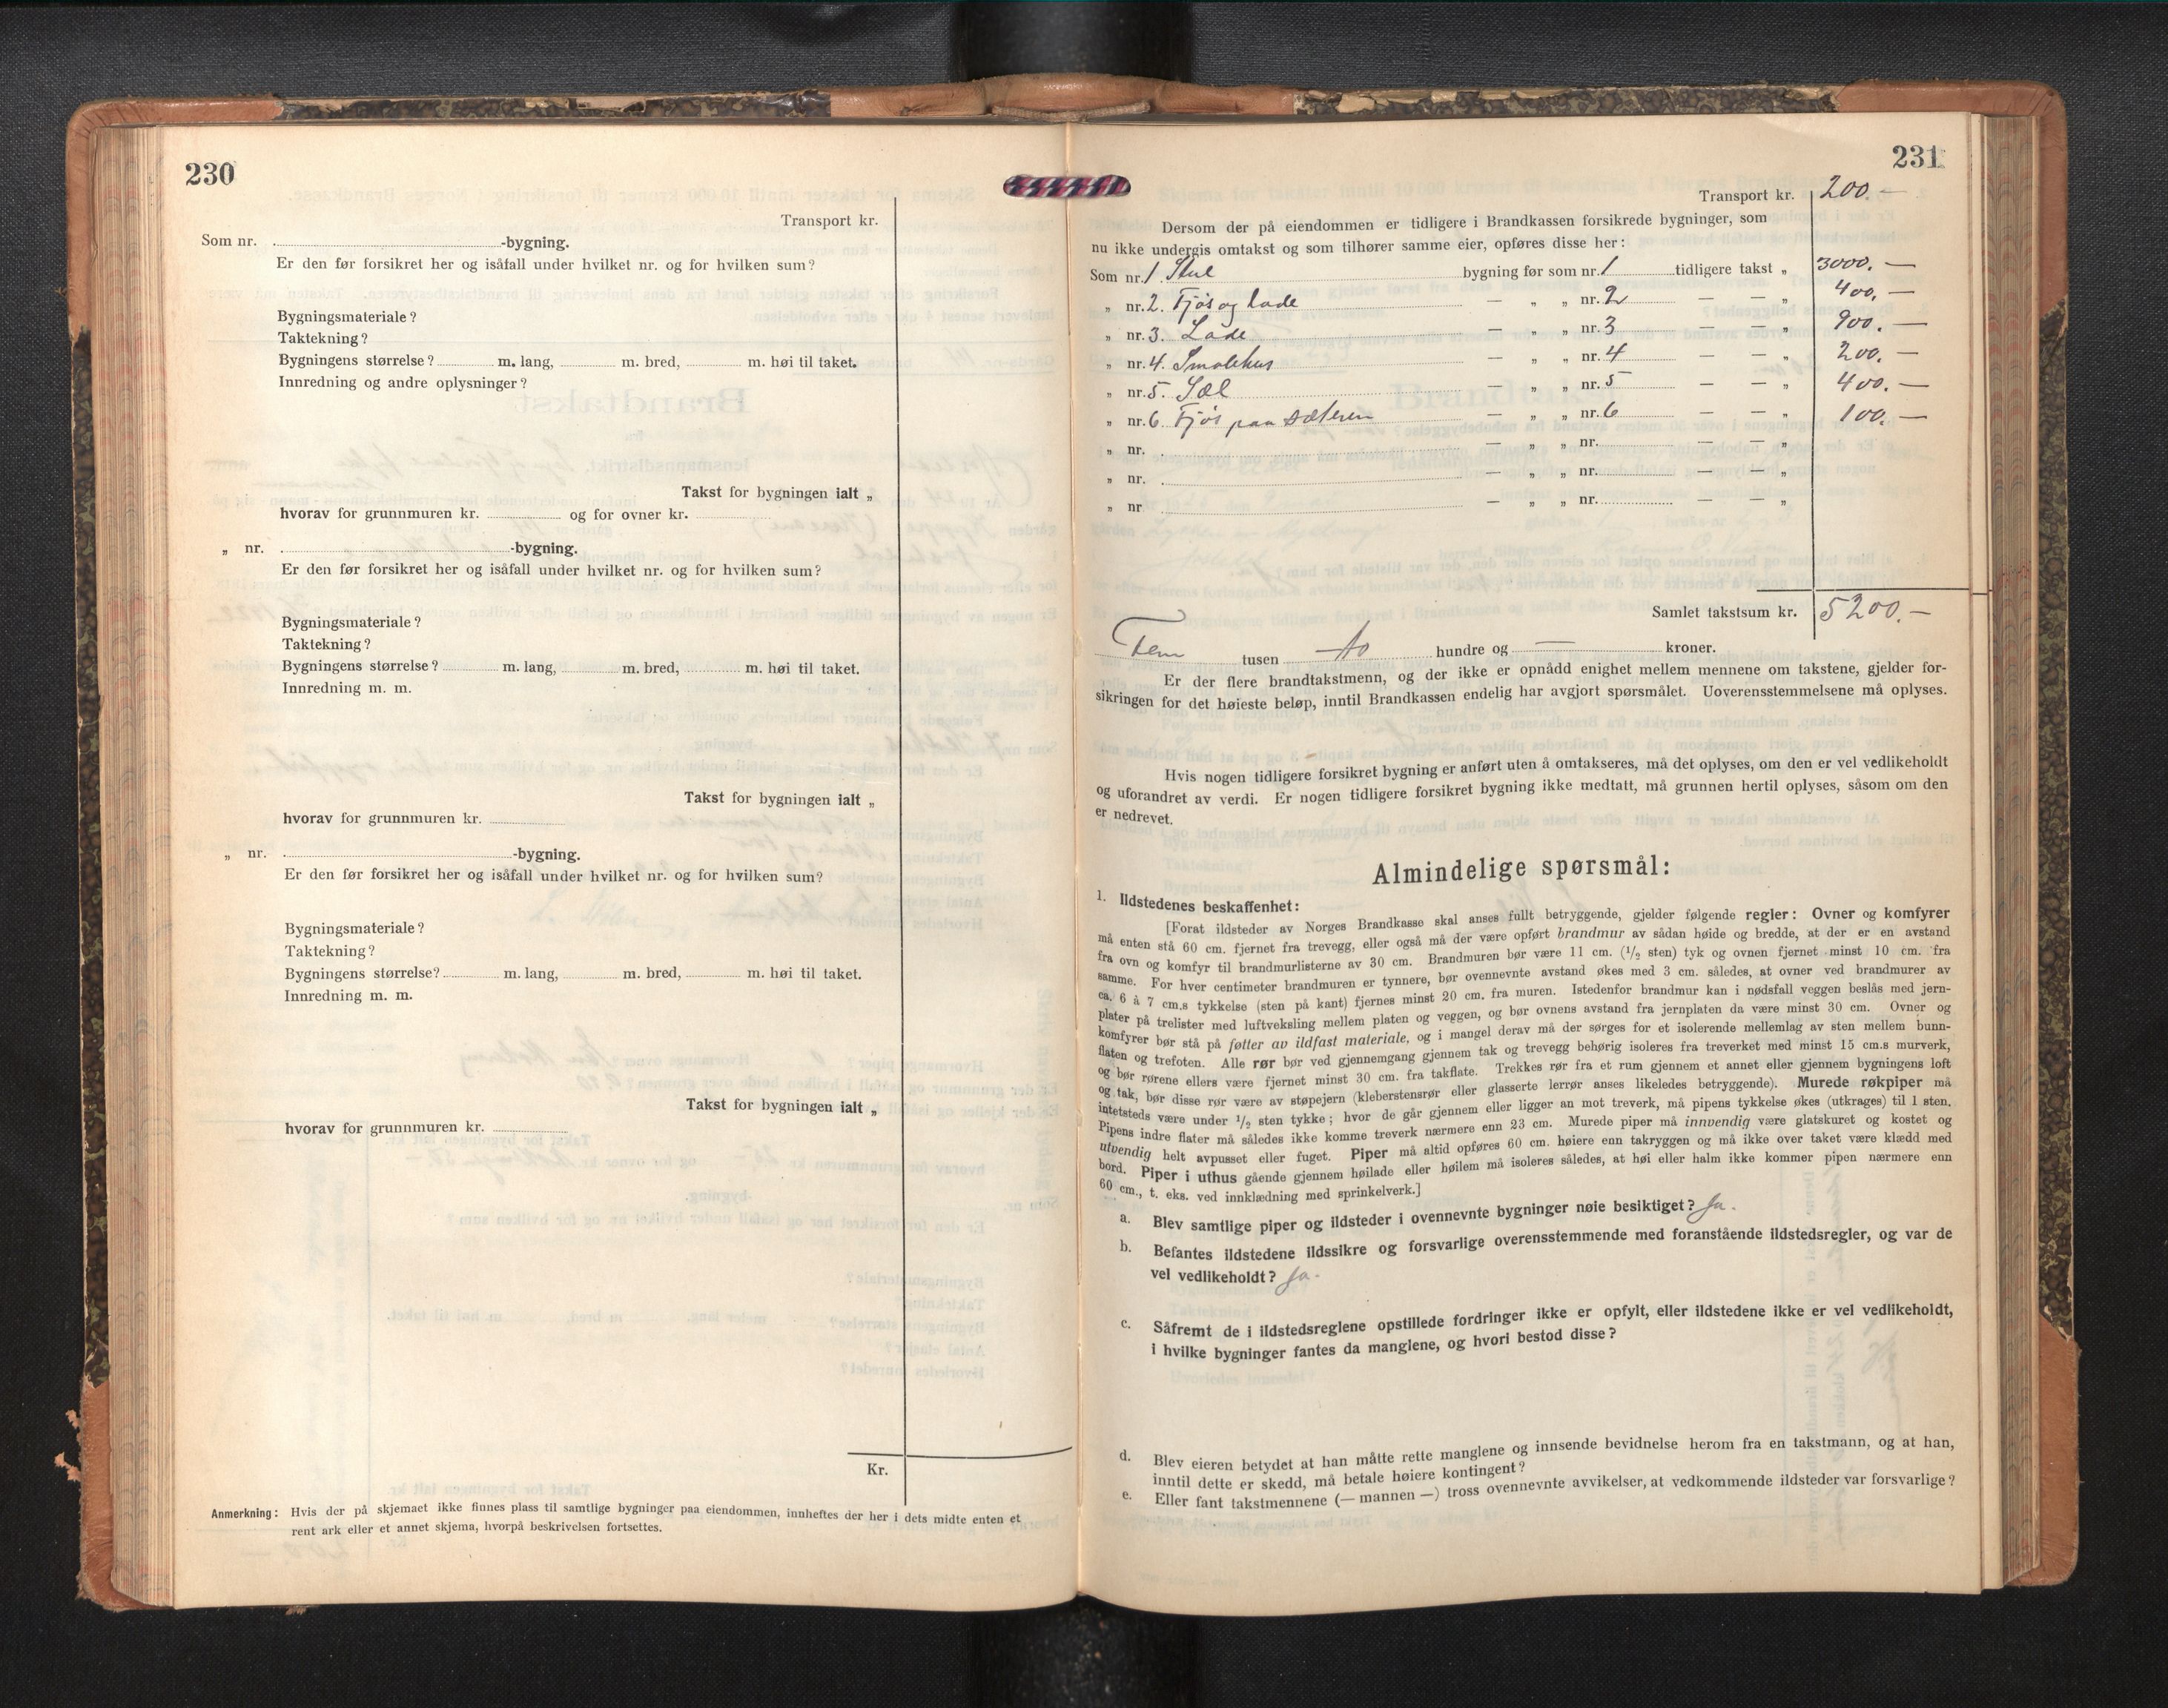 230
Transport kr.
Som nr. -bygning.
Er den før forsikret her og isåfall under hvilket nr. og for hvilken sum?
Bygningsmateriale?
Taktekning?
Bygningens størrelse? m. lang, m. bred, m. høi til taket.
Innredning og andre oplysninger?
Takst for bygningen ialt „
hvorav for grunnmuren kr. og for ovner kr.
„ nr. -bygning.
Er den før forsikret her og isåfall under hvilket nr. og for hvilken sum?
Bygningsmateriale?
Taktekning?
Bygningens størrelse? m. lang, m. bred, m. høi til taket.
Innredning m. m.
Takst for bygningen ialt „
hvorav for grunnmuren kr.
„ nr. -bygning.
Er den før forsikret her og isåfall under hvilket nr. og for hvilken sum?
Bygningsmateriale?
Taktekning?
Bygningens størrelse? m. lang, m. bred, m. høi til taket.
Innredning m. m.
Takst for bygningen ialt „
hvorav for grunnmuren kr.
Kr.
Anmerkning: Hvis der på skjemaet ikke finnes plass til samtlige bygninger paa eiendommen, innheftes der her i dets midte enten et
rent ark eller et annet skjema, hvorpå beskrivelsen fortsettes.
231
Transport kr. 200.—
Dersom der på eiendommen er tidligere i Brandkassen forsikrede bygninger, som
nu ikke undergis omtakst og som tilhører samme eier, opføres disse her:
Som nr. 1. bygning før som nr. 1 tidligere takst „ 3000.—
„ nr. 2. Fjøs og lade — „ „ nr. 2 — — „ 400.—
„ nr. 3. Lade — „ „ nr. 3 — — „ 900.—
„ nr. 4. Smalehus — „ „ nr. 4 — — „ 200.—
„ nr. 5. Sæl — „ „ nr. 5 — — „ 400.—
„ nr. 6. Fjøs paa sæteren — „ „ nr. 6 — — „ 100.—
„ nr. — „ „ nr. — — „
„ nr. — „ „ nr. — — „
„ nr — „ „ nr. — — „
Samlet takstsum kr. 5200.—
Fem tusen to hundre og — kroner.
Er der flere brandtakstmenn, og der ikke er opnådd enighet mellem mennene om takstene, gjelder for-
sikringen for det høieste beløp, inntil Brandkassen endelig har avgjort spørsmålet. Uoverensstemmelsene må oplyses.
Hvis nogen tidligere forsikret bygning er anført uten å omtakseres, må det oplyses, om den er vel vedlikeholdt
og uforandret av verdi. Er nogen tidligere forsikret bygning ikke medtatt, må grunnen hertil oplyses, såsom om den
er nedrevet.
Almindelige spørsmål:
1. Ildstedenes beskaffenhet:
[Forat ildsteder av Norges Brandkasse skal anses fullt betryggende, gjelder følgende regler: Ovner og komfyrer
må enten stå 60 cm. fjernet fra trevegg, eller også må der være opført brandmur av sådan høide og bredde, at der er en avstand
fra ovn og komfyr til brandmurlisterne av 30 cm. Brandmuren bør være 11 cm. (1/2 sten) tyk og ovnen fjernet minst 10 cm. fra
samme. For hver centimeter brandmuren er tynnere, bør ovennevnte avstand økes med 3 cm. således, at ovner ved brandmurer av
ca. 6 à 7 cm.s tykkelse (sten på kant) fjernes minst 20 cm. fra muren. Istedenfor brandmur kan i nødsfall veggen beslås med jern-
plater på trelister med luftveksling mellem platen og veggen, og bør ovnens avstand fra jernplaten da være minst 30 cm. Ovner og
komfyrer bør stå på føtter av ildfast materiale, og i mangel derav må der sørges for et isolerende mellemlag av sten mellem bunn-
flaten og trefoten. Alle rør bør ved gjennemgang gjennem tak og trevegg behørig isoleres fra treverket med minst 15 cm.s murverk,
og bør rørene ellers være fjernet minst 30 cm. fra takflate. Trekkes rør fra et rum gjennem et annet eller gjennem bygningens loft
og tak, bør disse rør være av støpejern (kleberstensrør eller glasserte lerrør anses likeledes betryggende). Murede røkpiper må
intetsteds være under 1/2 sten tykke; hvor de går gjennem eller ligger an mot treverk, må pipens tykkelse økes (utkrages) til 1 sten.
Pipens indre flater må således ikke komme treverk nærmere enn 23 cm. Murede piper må innvendig være glatskuret og kostet og
utvendig helt avpusset eller fuget. Piper må altid opføres 60 cm. høiere enn takryggen og må ikke over taket være klædd med
bord. Piper i uthus gående gjennem høilade eller høilem må isoleres således, at høi eller halm ikke kommer pipen nærmere enn
60 cm., t. eks. ved innklædning med sprinkelverk.]
a. Blev samtlige piper og ildsteder i ovennevnte bygninger nøie besiktiget? Ja.
b. Befantes ildstedene ildssikre og forsvarlige overensstemmende med foranstående ildstedsregler, og var de
vel vedlikeholdt? Ja.
c. Såfremt de i ildstedsreglene opstillede fordringer ikke er opfylt, eller ildstedene ikke er vel vedlikeholdt,
i hvilke bygninger fantes da manglene, og hvori bestod disse?
d. Blev eieren betydet at han måtte rette manglene og innsende bevidnelse herom fra en takstmann, og at han,
inntil dette er skedd, må betale høiere kontingent?
e. Eller fant takstmennene (— mannen —) tross ovennevnte avvikelser, at vedkommende ildsteder var forsvarlige?